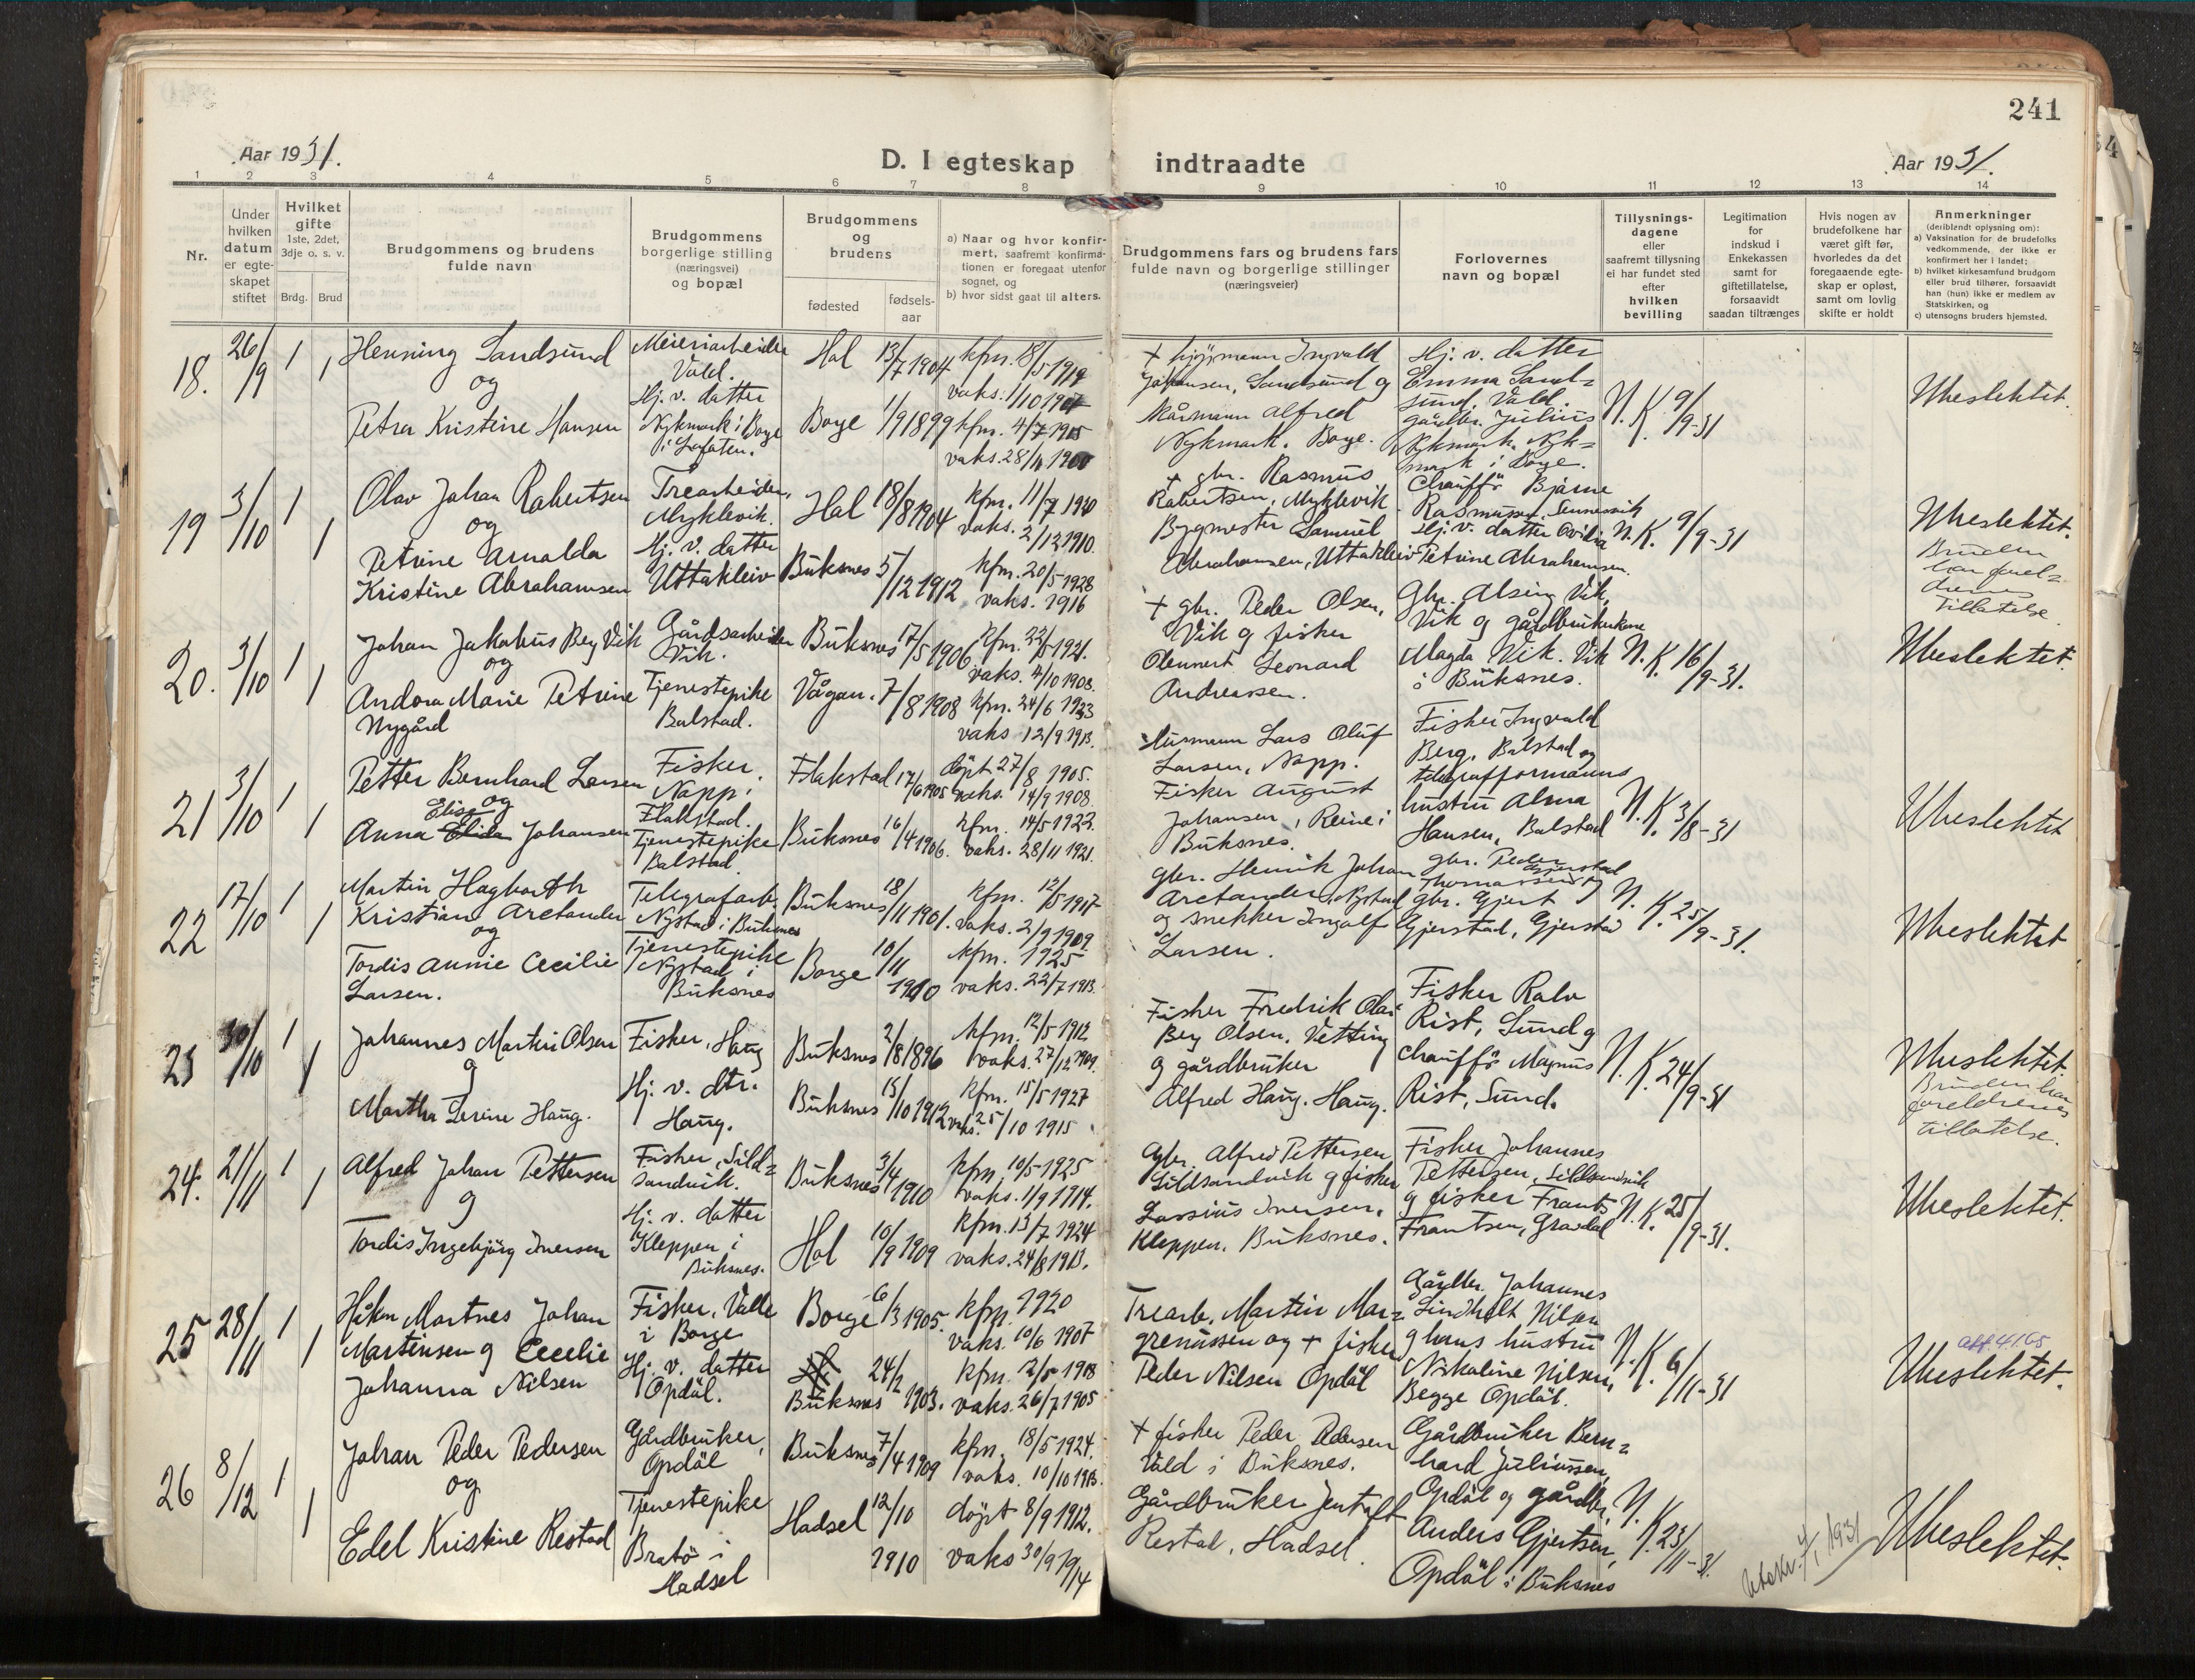 241
Aar 1931.
D. I egteskap indtraadte
Aar 1931.
1 2 3 4 5 6 7 8 9 10 11 12 13 14
Nr.
Under hvilken datum er egte- skapet stiftet
Hvilket gifte
1ste, 2det, 3dje o. s. v.
Brdg. Brud
Brudgommens og brudens fulde navn
Brudgommens borgerlige stilling (næringsvei) og bopæl
Brudgommens og brudens
fødested
fødsels- aar
a) Naar og hvor konfir- mert, saafremt konfirma- tionen er foregaat utenfor sognet, og
b) hvor sidst gaat til alters.
Brudgommens fars og brudens fars fulde navn og borgerlige stillinger (næringsveier)
Forlovernes navn og bopæl
Tillysnings- dagene eller saafremt tillysning ei har fundet sted efter hvilken bevilling
Legitimation for indskud i Enkekassen samt for giftetillatelse, forsaavidt saadan tiltrænges
Hvis nogen av brudefolkene har været gift før, hvorledes da det foregaaende egte- skap er opløst, samt om lovlig skifte er holdt
Anmerkninger (deriblandt oplysning om):
a) Vaksination for de brudefolks vedkommende, der ikke er konfirmert her i landet;
b) hvilket kirkesamfund brudgom eller brud tilhører, forsaavidt han (hun) ikke er medlem av Statskirken, og
c) utensogns bruders hjemsted.
18. 26/9 1 1
Henning Sandsund
og
Petra Kristine Hansen
Meieriarbeider
Vold.
Hj. v. datter
Nykmark i Borge
i Lofoten.
Hol 13/7 1904
Borge 1/9 1899
kfm. 18/5 1919
vaks. 1/10 1904
kfm. 4/7 1915
vaks. 28/11 1900
Ingvald
Johansen, Sandsund og
Alfred
Nykmark. Borge.
Hj. v. datter
Emma Sand=
sund, Vold.
gårdbr. Julius
Nykmark. Nyk=
mark i Borge.
N. K. 9/9-31
Ubeslektet.
19 3/10 1 1
Olav Johan Robertsen
og
Petrine Arnolda
Kristine Abrahamsen
Trearbeider,
Myklevik.
Hj. v. datter
Uttakleiv
Hol 18/8 1904
Buksnes 5/12 1912
kfm. 11/7 1920
vaks. 2/12 1910.
kfm. 20/5 1928
vaks. 1916
+ gbr. Rasmus
Robertsen, Myklevik
Bygmester Samuel
Abrahamsen, Uttakleiv
Chauffør Bjarne
Rasmussen,
Hj. v. datter
Petrine Abrahamsen.
N. K. 9/9-31
Ubeslektet.
Bruden
har forel=
drenes
tillatelse.
20. 3/10 1 1
Johan Jakobus Berg Vik
og
Andora Marie Petrine
Nygård
Gårdsarbeider
Vik.
Tjenestepike
Balstad.
Buksnes 17/5 1906
Vågan. 7/8 1908
kfm. 22/5 1921.
vaks. 4/10 1908.
kfm. 24/6 1923
vaks 12/9 1913.
+ gbr. Peder Olsen,
Vik og fisker
Leonard
Andreassen.
Gbr. Alsing Vik,
Vik og gårdbrukerkone
Magda Vik. Vik
i Buksnes.
N. K. 16/9-31.
Ubeslektet.
21 3/10 1 1
Petter Bernhard Larsen
og
Elise
Anna Elida Johansen
Fisker,
Napp i
Flakstad.
Tjenestepike
Balstad.
Flakstad 17/6 1905
Buksnes 16/4 1906.
døpt 27/8 1905.
vaks. 14/9 1908.
kfm. 14/5 1922.
vaks. 28/11 1921.
Lars Oluf
Larsen, Napp.
Fisker August
Johansen, Reine i
Buksnes.
Fisker Ingvald
Berg, Balstad og
telegrafformanns
hustru Alma
Hansen, Balstad
N. K. 3/8-31
Ubeslektet
22 17/10 1 1
Martin Hagbarth
Kristian Arctander
og
Tordis Annie Cecilie
Larsen.
Telegrafarb.
Nystad i Buksnes
Tjenestepike
Nystad i
Buksnes
Buksnes 18/11 1901.
Borge 10/11 1910
kfm. 12/5 1917
vaks. 2/9 1909.
kfm. 1925
vaks. 22/7 1913.
gbr. Henrik Johan
Arctander, Nystad
og snekker Ingolf
Larsen.
gbr. Peder
Thomassen, Gjerstad og
gbr. Gjert
Gjerstad, Gjerstad
N. K. 25/9-31.
Ubeslektet
23 30/10 1 1
Johannes Martin Olsen
og
Martha Serine Haug.
Fisker, Haug
Hj. v. dtr.
Haug.
Buksnes 2/8 1896
Buksnes 15/10 1912
kfm. 12/5 1912
vaks. 27/12 1909.
kfm. 15/5 1927
vaks. 25/10 1915
Fisker Fredrik Olai
Berg Olsen, Vetting
og gårdbruker
Alfred Haug. Haug.
Fisker Ralv
Rist, Sund og
chauffør Magnus
Rist, Sund.
N. K. 24/9-31
Ubeslektet.
Bruden har
foreldrenes
tillatelse.
24. 21/11 1 1
Alfred Johan Pettersen
og
Tordis Ingebjørg Iversen
Fisker, Sild=
sandvik.
Hj. v. datter
Kleppen i
Buksnes.
Buksnes 3/4 1910
Hol 10/9 1909
kfm. 10/5-1925
vaks. 1/9 1914.
kfm. 13/7 1924
vaks. 24/8 1913.
Gbr. Alfred Pettersen
Sildsandvik og fisker
Lassius Iversen,
Kleppen. Buksnes.
Fisker Johannes
Pettersen, Sildsandvik
og fisker Frants
Frantsen, Gravdal
N. K. 25/9-31.
Ubeslektet.
25 28/11 1 1
Håkon Mortnes Johan
Martinsen og Cecelie
Johanna Nilsen
Fisker, Valle
i Borge
Hj. v. datter
Opdøl.
Borge 6/3 1905.
Buksnes 24/2 1903.
kfm. 1920
vaks. 10/6 1907
kfm. 12/5 1918
vaks. 26/7 1905
Trearb. Martin Mar=
grenussen og + fisker
Peder Nilsen Opdøl
Gårdbr. Johannes
Lindholt Nilsen
og hans hustru
Nikoline Nilsen,
Begge Opdøl.
N. K. 6/11-31
att. 4.1.65
Ubeslektet.
26 8/12 1 1
Johan Peder Pedersen
og
Edel Kristine Restad
Gårdbruker,
Opdøl
Tjenestepike
Bratø i
Hadsel
Buksnes 7/4 1909
Hadsel 12/10 1910
kfm. 18/5 1924.
vaks. 10/10 1913.
døpt 8/9 1912.
vaks 30/9 1914
+ fisker Peder Pedersen
Vold i Buksnes.
Gårdbruker Jentoft
Restad, Hadsel.
Gårdbruker Bern=
hard Juliussen,
Opdøl og gårdbr.
Anders Gjertsen,
Opdøl i Buksnes
N. K. 23/11-31.
Utskr. 4/1 1931
Ubeslektet.